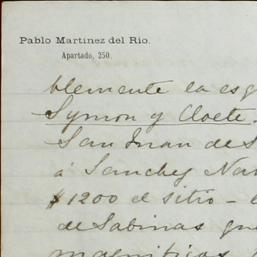 Pablo Martinez del Rio.
Apartado, 250.
blemente la esq
Symon y Cloete.
San Juan de S
á Sanchez Nav
$1200 el sitio – e
de Sabinas que
magnificas